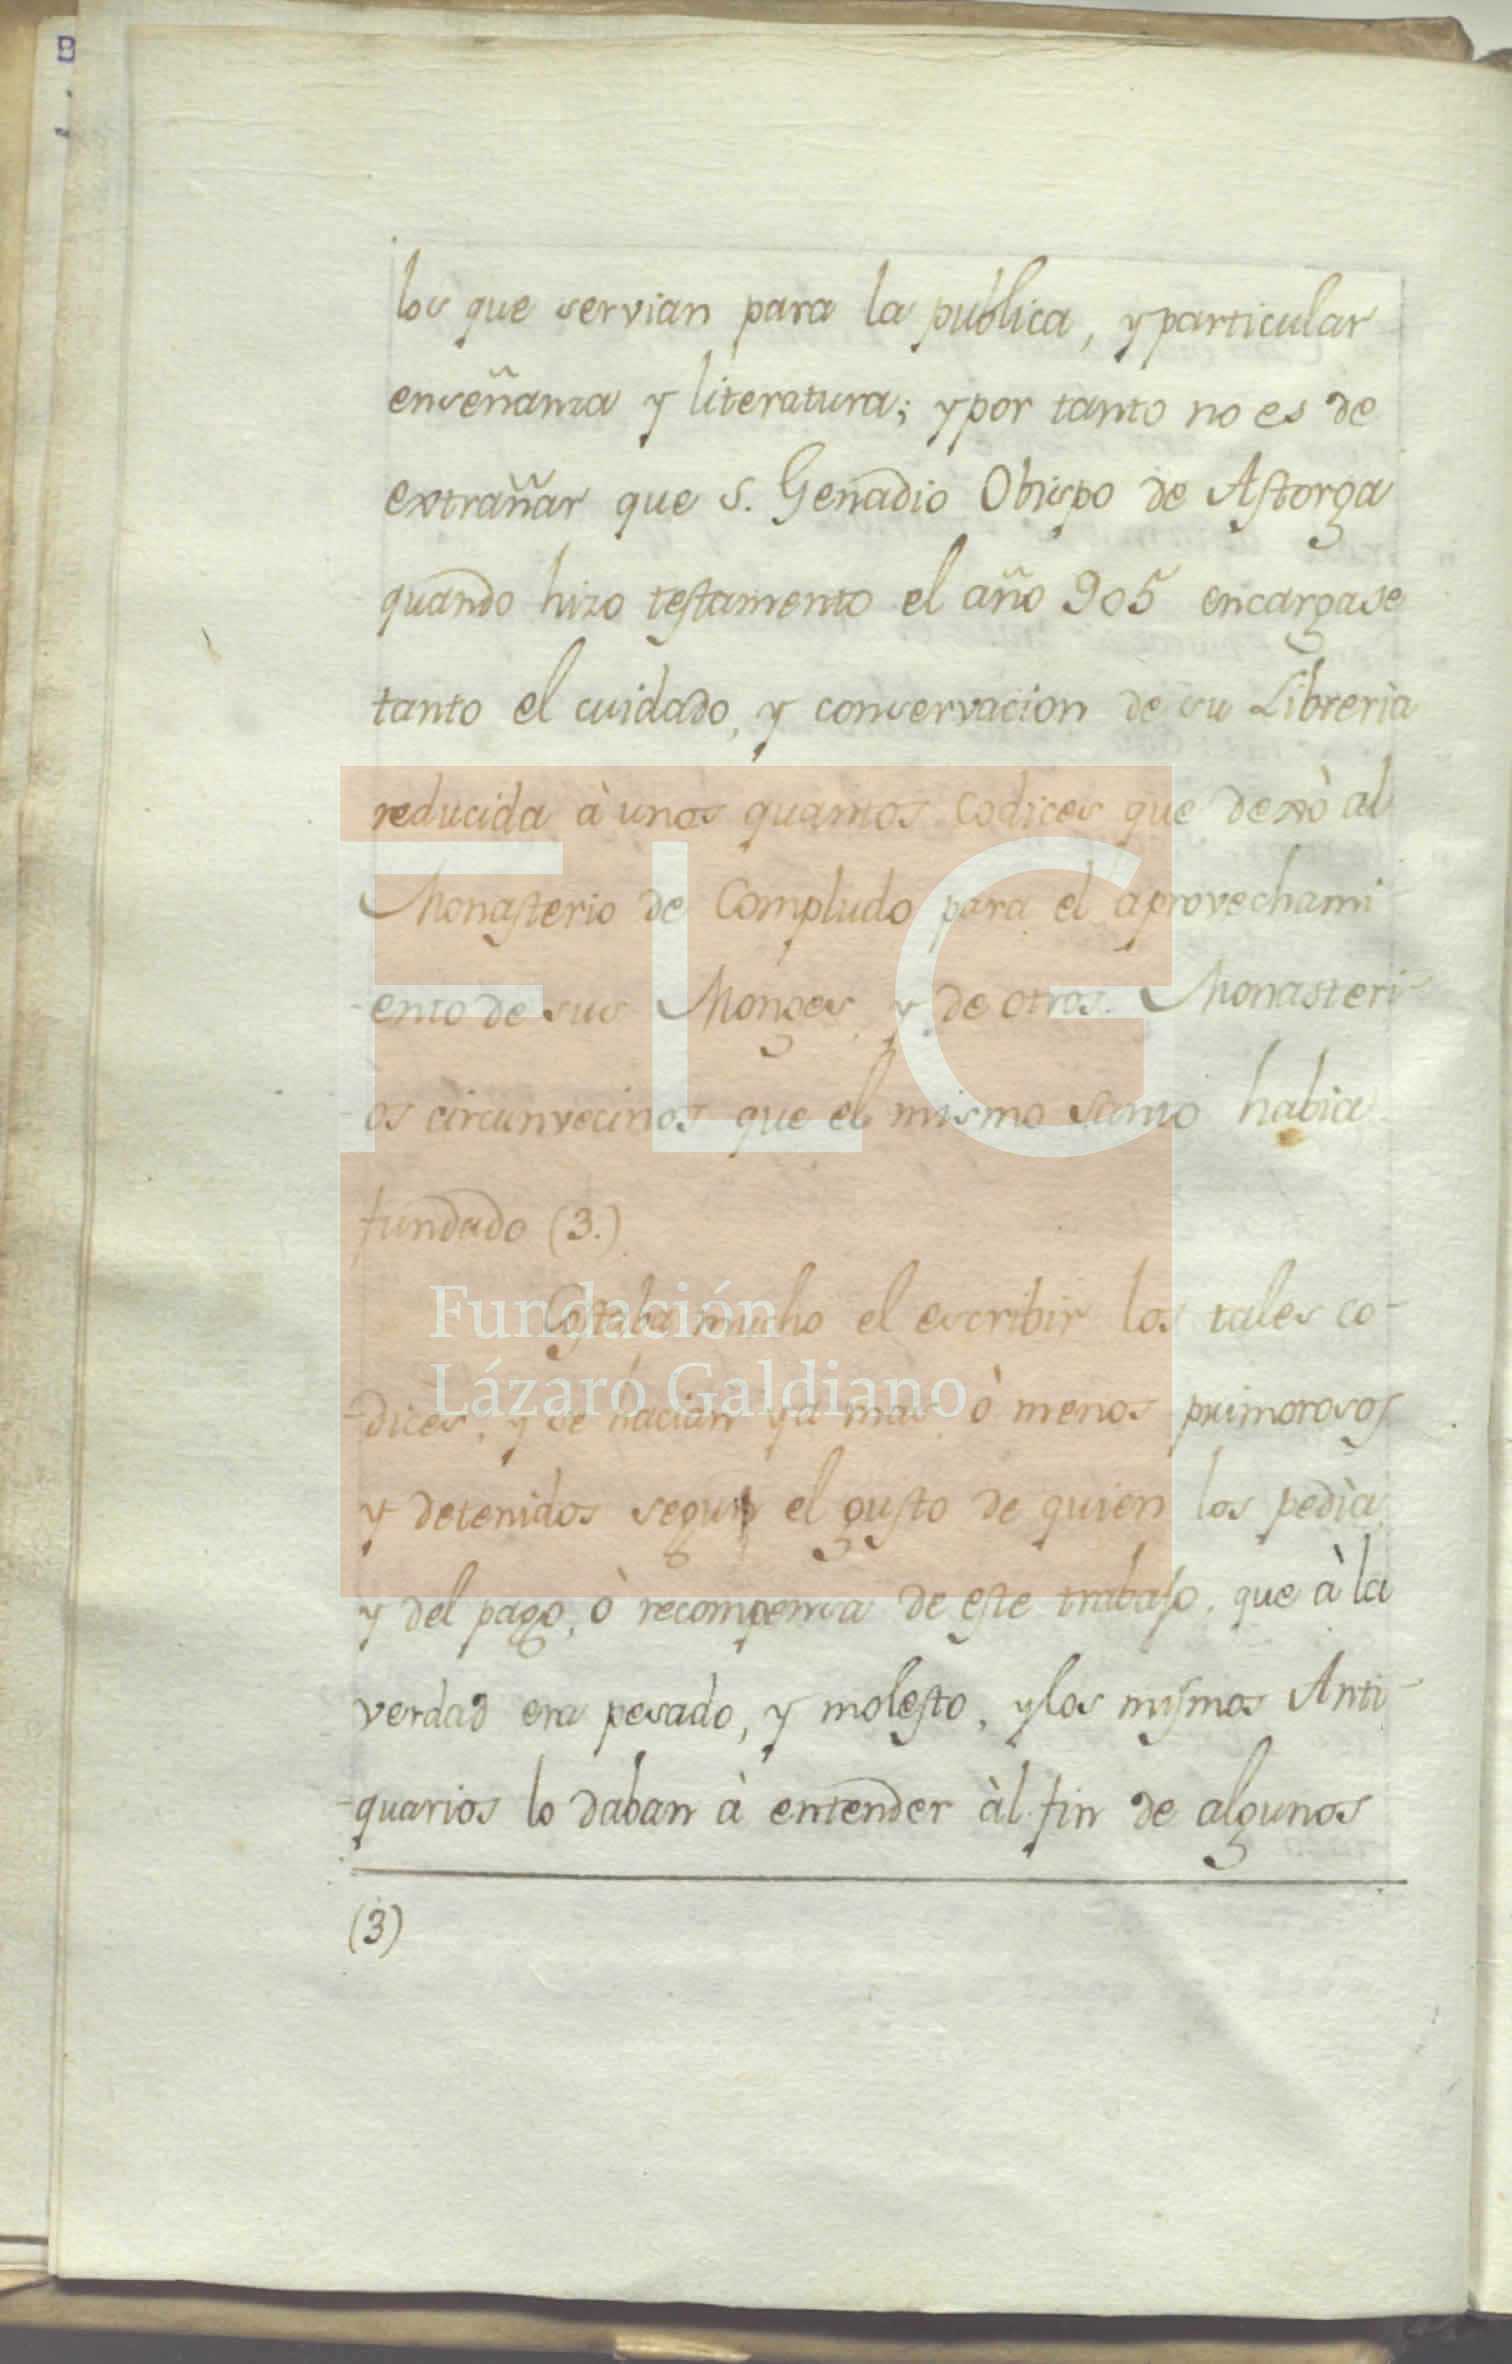 los que servian para la publica, y particular
enseñanza y literatura; y por tanto no es de
extrañar que S. Genadio Obispo de Astorga
quando hizo testamento el año 905 encargase
tanto el cuidado, y conservacion de su Libreria
reducida à unos quantos codices que dexò al
Monasterio de Compludo para el aprovechami
-ento de sus Monges, y de otros Monasteri-
-os circunvecinos que el mismo Santo habia
fundado (3.)
Costaba mucho el escribir los tales co-
-dices, y se hacian ya mas, ò menos primorosos
y detenidos segun el gusto de quien los pedia,
y del pago, ò recompensa de este trabajo, que à la
verdad era pesado, y molesto, y los mismos Anti-
-quarios lo daban à entender àl fin de algunos
(3)
FLG
Fundación
Lázaro Galdiano
B